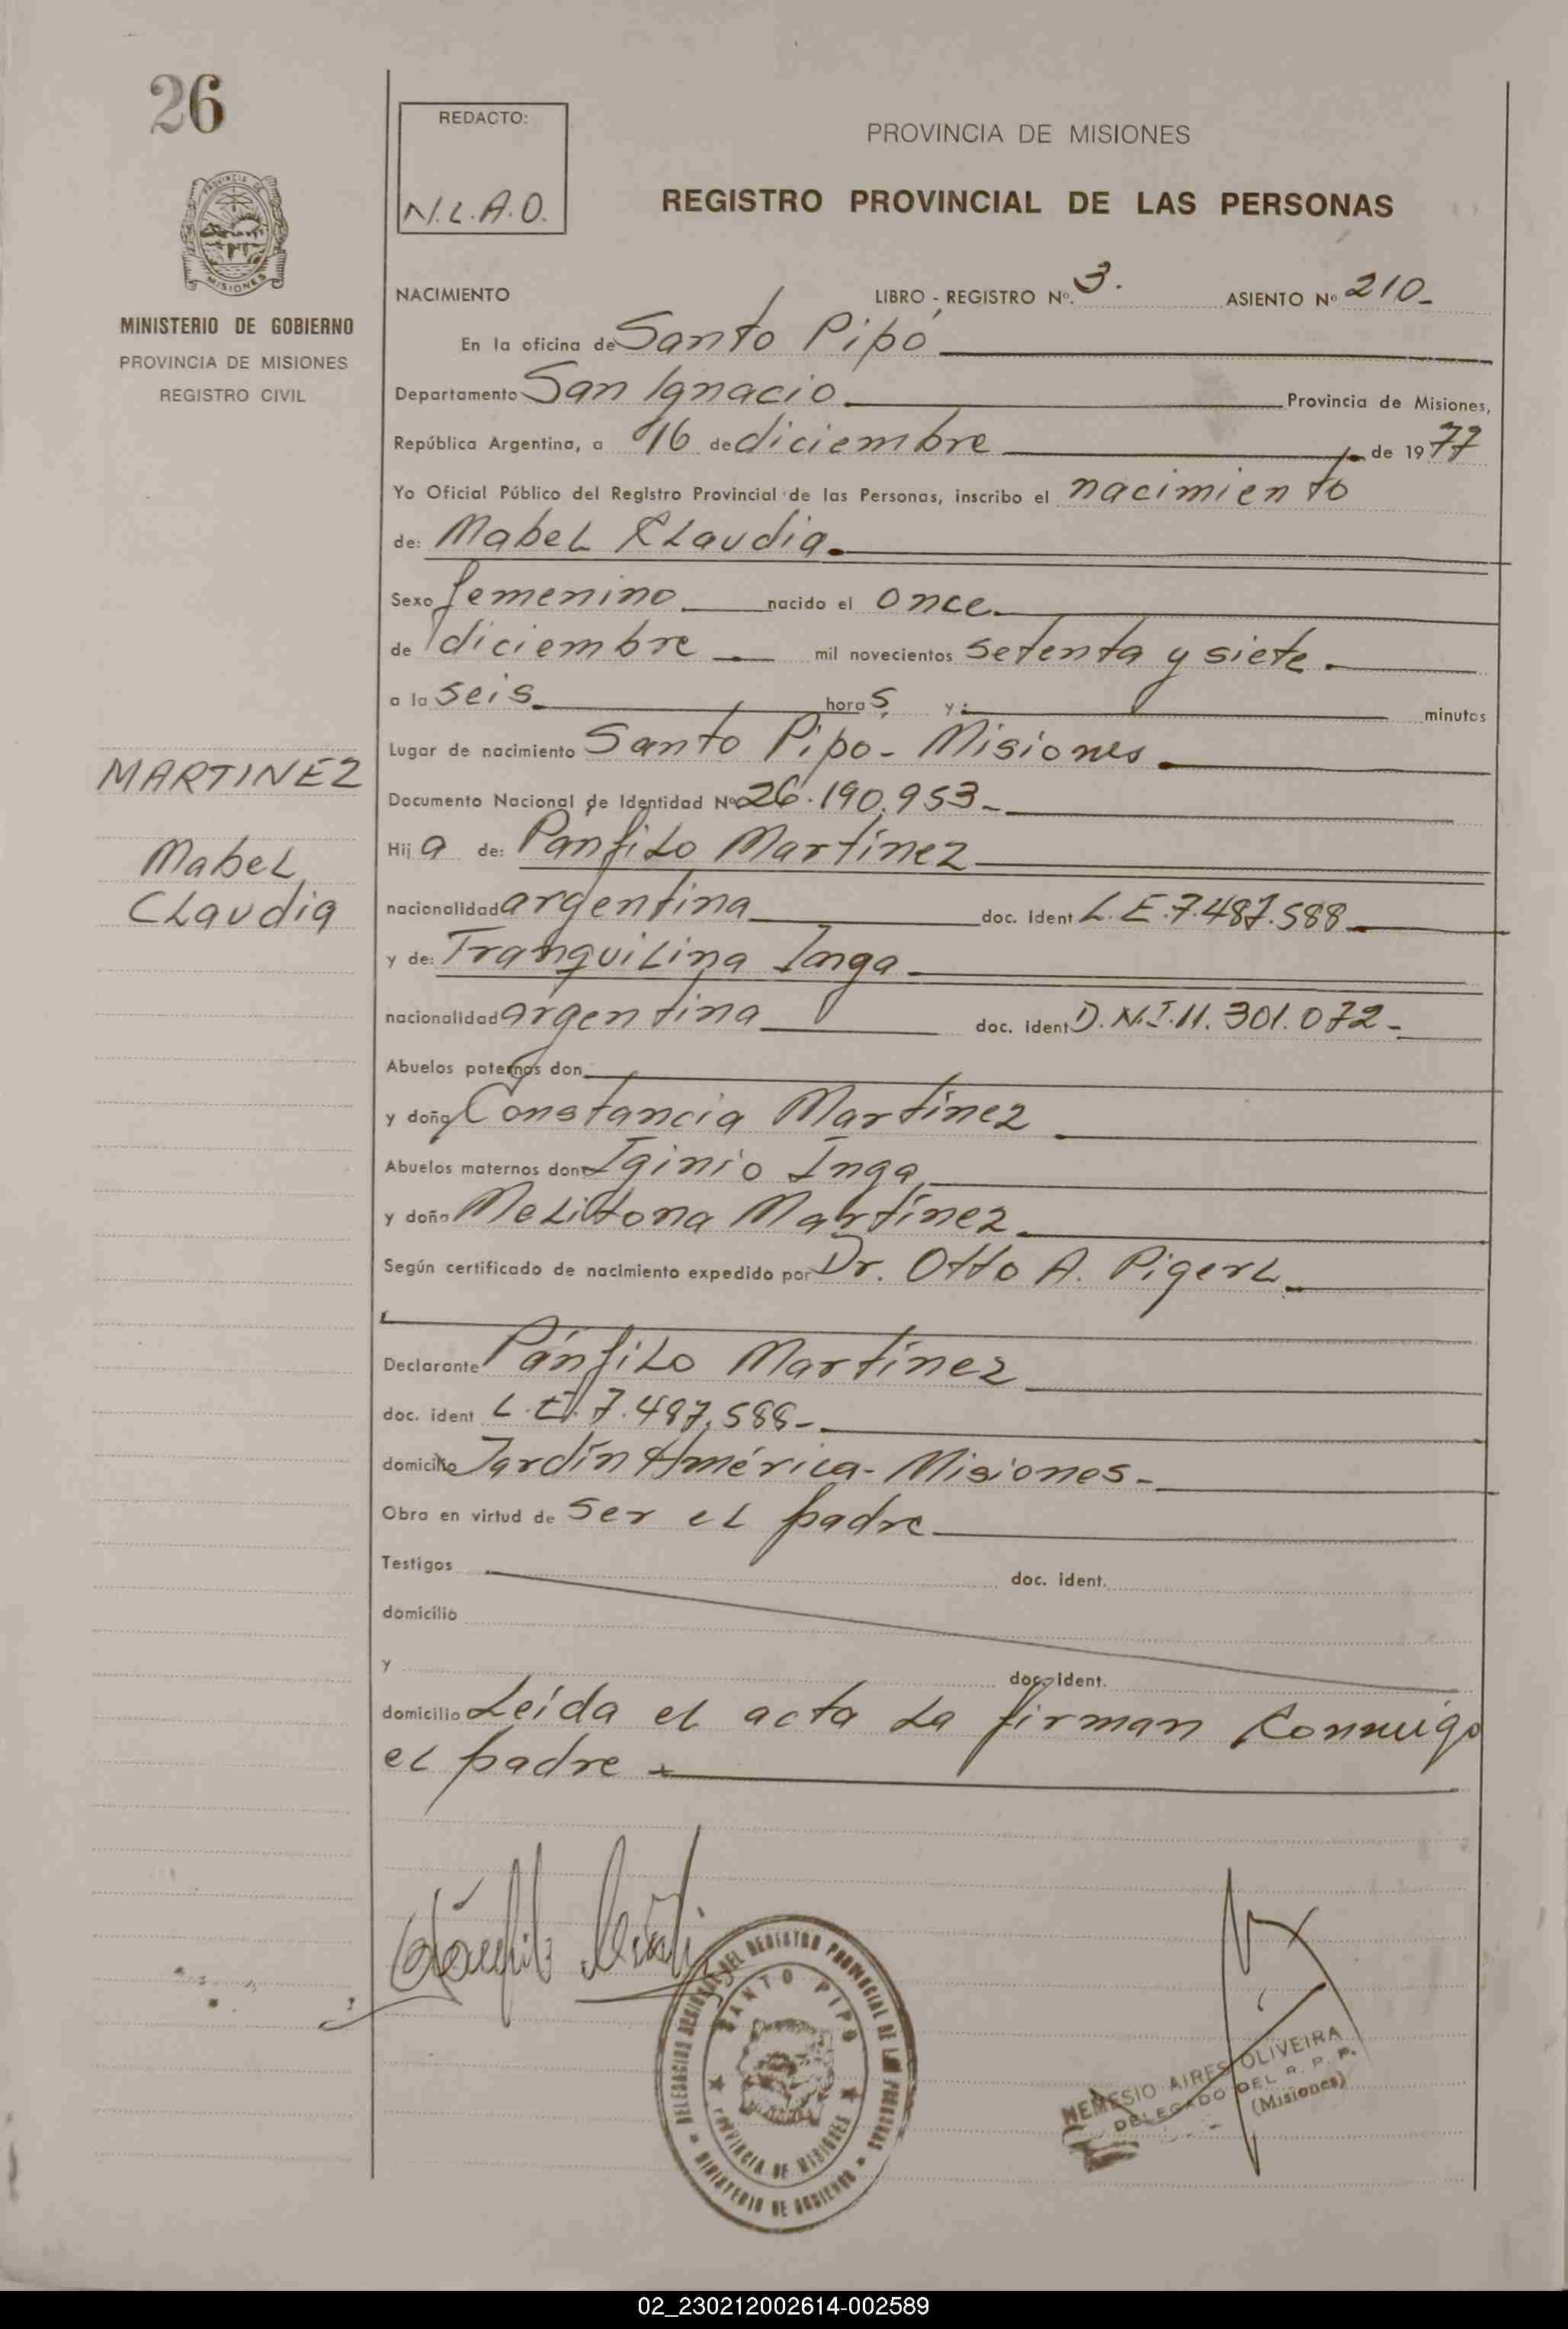 26
REDACTO:
N.L.A.O.
PROVINCIA DE MISIONES
REGISTRO PROVINCIAL DE LAS PERSONAS
PROVINCIA DE
MISIONES
MINISTERIO DE GOBIERNO
PROVINCIA DE MISIONES
REGISTRO CIVIL
NACIMIENTO LIBRO - REGISTRO Nº. 3. ASIENTO Nº 210-
En la oficina de Santo Pipó
Departamento San Ignacio Provincia de Misiones,
República Argentina, a 16 de diciembre de 1977
Yo Oficial Público del Registro Provincial de las Personas, inscribo el nacimiento
de: Mabel Claudia
Sexo femenino nacido el once
de diciembre mil novecientos setenta y siete
a la seis horas y minutos
Lugar de nacimiento Santo Pipo - Misiones
Documento Nacional de Identidad Nº 26.190.953-
MARTINEZ
Mabel
Claudia
Hija de: Panfilo Martínez
nacionalidad argentina doc. ident L.E.7.487.588
y de: Tranquilina Inga
nacionalidad argentina doc. ident D.N.I.11.301.072-
Abuelos paternos don
y doña Constancia Martínez
Abuelos maternos don Iginio Inga
y doña Melitona Martínez
Según certificado de nacimiento expedido por Dr. Otto A. Pigerl
Declarante Pánfilo Martínez
doc. ident L.E. 7.487.588-
domicilio Jardín América - Misiones-
Obra en virtud de ser el padre
Testigos doc. ident.
domicilio
y doc. ident.
domicilio Leída el acta la firman conmigo
el padre
DELEGACION REGIONAL DEL REGISTRO PROVINCIAL DE LAS PERSONAS
SANTO PIPO
PROVINCIA DE MISIONES
MINISTERIO DE GOBIERNO
NEMESIO AIRES OLIVEIRA
DELEGADO DEL R. P. P.
(Misiones)
02_230212002614-002589